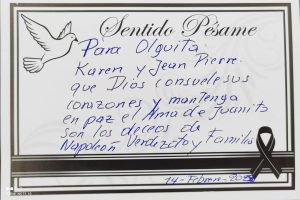 Sentido Pésame
Para Olguita
Karen y Jean Pierre.
que Dios consuele sus
corazones y mantenga
en paz el Alma de Juanito
son los deceos de
Napoleón Verdizoto y Familia
14-Febrero-202